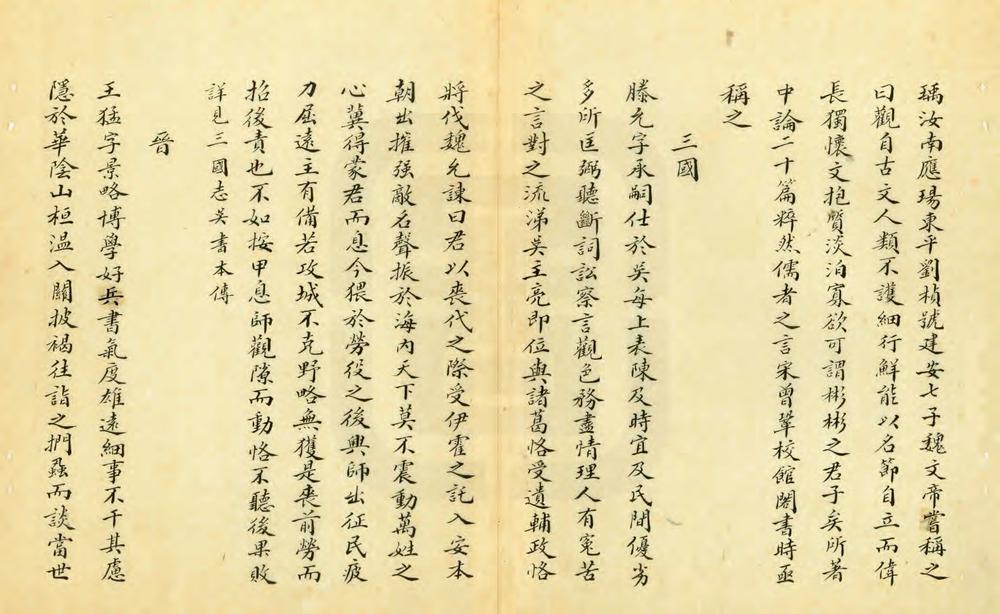 瑀汝南應瑒東平劉楨號建安七子魏文帝嘗稱之
曰觀自古文人類不護細行鮮能以名節自立而偉
長獨懷文抱質淡泊寡欲可謂彬彬之君子矣所著
中論二十篇粹然儒者之言宋曾鞏校館閣書時亟
稱之
三國
滕允字承嗣仕於吳每上表陳及時宜及民間優劣
多所匡弼聽斷詞訟察言觀色務盡情理人有寃苦
之言對之流涕吳主亮即位與諸葛恪受遺輔政恪
將伐魏允諫曰君以喪代之際受伊霍之託入安本
朝出摧强敵名聲振於海內天下莫不震動萬姓之
心冀得蒙君而息今猥於勞役之後興師出征民疲
力屈遠主有備若攻城不克野略無獲是喪前勞而
招後責也不如按甲息師觀隙而動恪不聽後果敗
詳見三國志吳書本傳
晉
王猛字景略博學好兵書氣度雄遠細事不干其慮
隱於華陰山桓溫入關披褐往詣之捫蝨而談當世